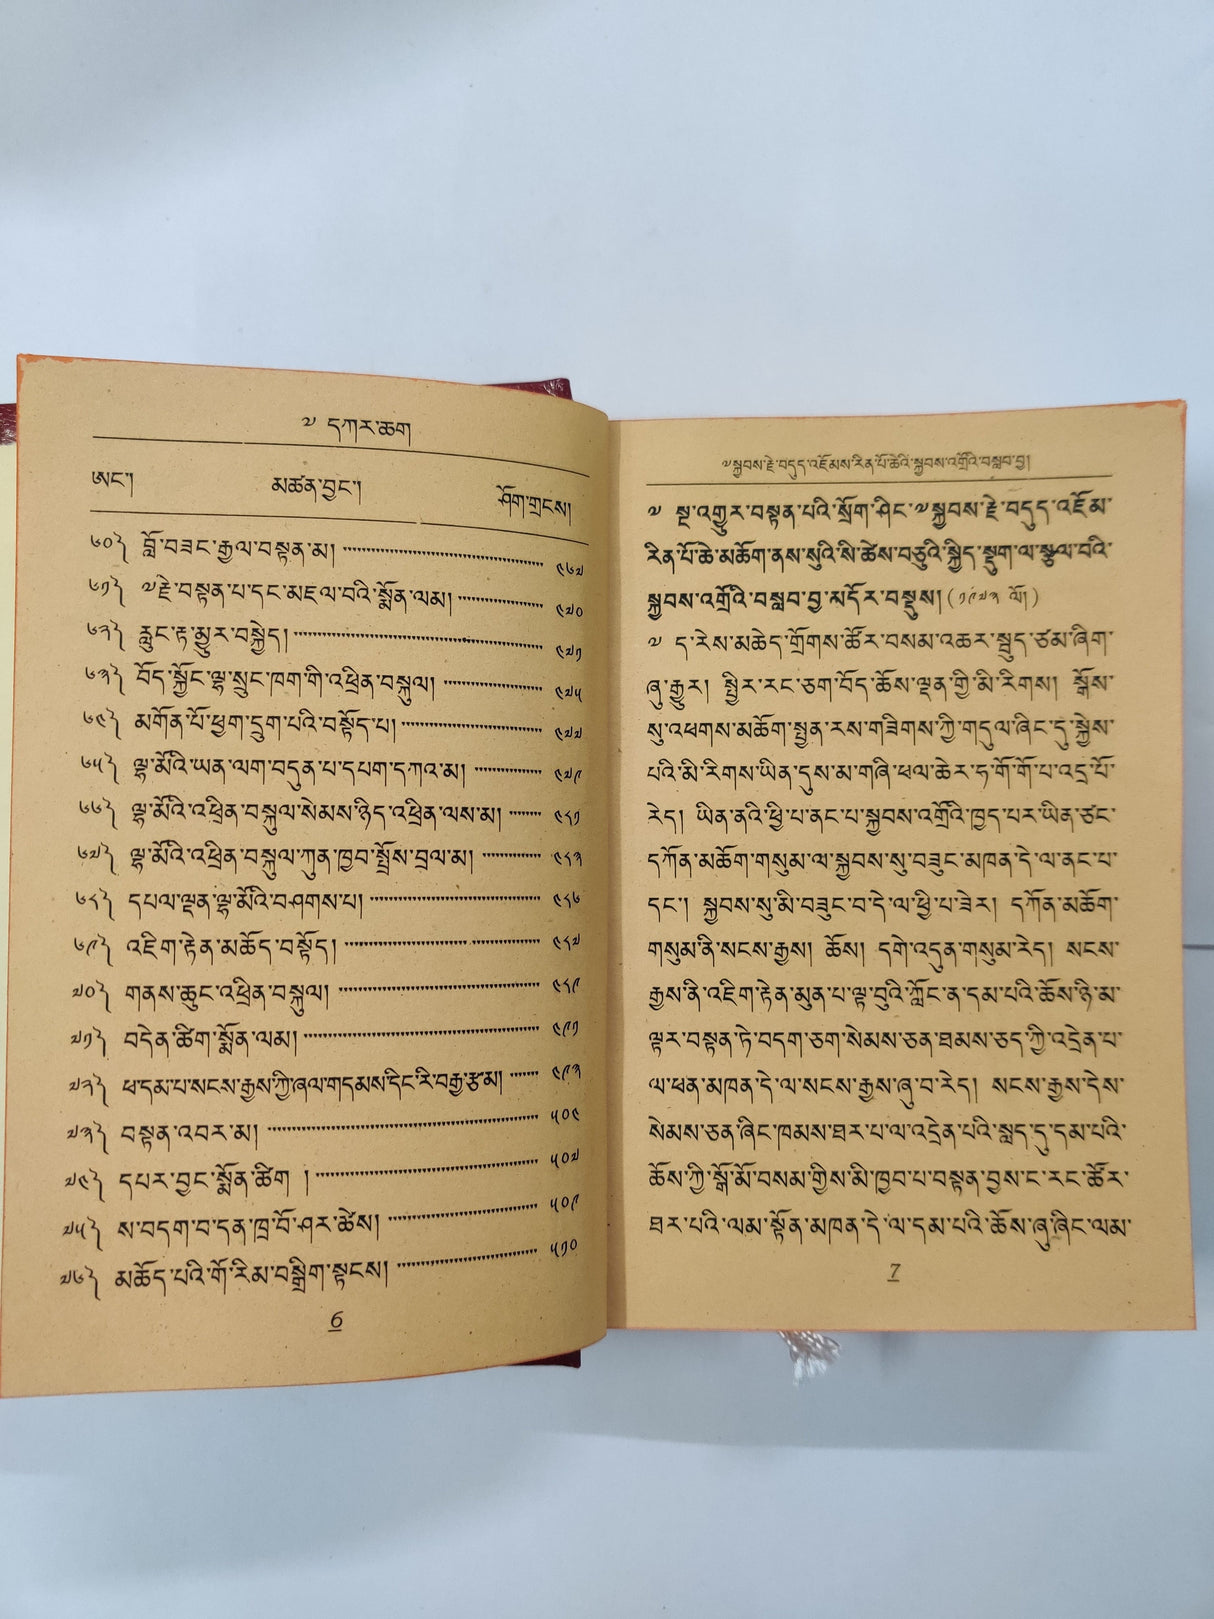 ༧ དཀར་ཆག
ཨང་། མཚན་བྱང་། ཤོག་གྲངས།
༦༠༽ བློ་བཟང་རྒྱལ་བསྟན་མ། ༤༦༧
༦༡༽ ༧རྗེ་བསྟན་པ་དང་མཇལ་བའི་སྨོན་ལམ། ༤༧༠
༦༢༽ རླུང་རྟ་མྱུར་བསྐྱེད། ༤༧༡
༦༣༽ བོད་སྐྱོང་ལྷ་སྲུང་ཁག་གི་འཕྲིན་བསྐུལ། ༤༧༥
༦༤༽ མགོན་པོ་ཕྱག་དྲུག་པའི་བསྟོད་པ། ༤༧༧
༦༥༽ ལྷ་མོའི་ཡན་ལག་བདུན་པ་དཔག་དཀའ་མ། ༤༧༩
༦༦༽ ལྷ་མོའི་འཕྲིན་བསྐུལ་སེམས་ཉིད་འཕྲིན་ལས་མ། ༤༨༡
༦༧༽ ལྷ་མོའི་འཕྲིན་བསྐུལ་ཀུན་ཁྱབ་སྤྲོས་བྲལ་མ། ༤༨༣
༦༨༽ དཔལ་ལྡན་ལྷ་མོའི་བཤགས་པ། ༤༨༦
༦༩༽ འཇིག་རྟེན་མཆོད་བསྟོད། ༤༨༧
༧༠༽ གནས་ཆུང་འཕྲིན་བསྐུལ། ༤༨༩
༧༡༽ བདེན་ཚིག་སྨོན་ལམ། ༤༩༡
༧༢༽ ཕ་དམ་པ་སངས་རྒྱས་ཀྱི་ཞལ་གདམས་དིང་རི་བརྒྱ་རྩ་མ། ༤༩༣
༧༣༽ བསྟན་འབར་མ། ༥༠༤
༧༤༽ དཔར་བྱང་སྨོན་ཚིག ། ༥༠༧
༧༥༽ ས་བདག་བ་དན་ཁྲ་བོ་ཤར་ཚེས། ༥༠༩
༧༦༽ མཆོད་པའི་གོ་རིམ་བསྒྲིག་སྟངས། ༥༡༠
6
༧སྐྱབས་རྗེ་བདུད་འཇོམས་རིན་པོ་ཆེའི་སྐྱབས་འགྲོའི་བསླབ་བྱ།
༧ སྔ་འགྱུར་བསྟན་པའི་སྲོག་ཤིང་༧སྐྱབས་རྗེ་བདུད་འཇོམ་
རིན་པོ་ཆེ་མཆོག་ནས་སུའི་སི་ཚེས་བཅུའི་སྐྱིད་སྡུག་ལ་སྩལ་བའི་
སྐྱབས་འགྲོའི་བསླབ་བྱ་མདོར་བསྡུས། (༡༩༧༣ ལོ།)
༧ ད་རེས་མཆེད་གྲོགས་ཚོར་བསམ་འཆར་སྦྲུད་ཙམ་ཞིག་
ཞུ་རྒྱུར། སྤྱིར་རང་ཅག་བོད་ཆོས་ལྡན་གྱི་མི་རིགས། སྒོས་
སུ་འཕགས་མཆོག་སྤྱན་རས་གཟིགས་ཀྱི་གདུལ་ཞིང་དུ་སྐྱེས་
པའི་མི་རིགས་ཡིན་དུས་མ་གཞི་ཕལ་ཆེར་ཧ་གོ་གོ་པ་འདྲ་པོ་
རེད། ཡིན་ནའི་ཕྱི་པ་ནང་པ་སྐྱབས་འགྲོའི་ཁྱད་པར་ཡིན་ཙང་
དཀོན་མཆོག་གསུམ་ལ་སྐྱབས་སུ་བཟུང་མཁན་དེ་ལ་ནང་པ་
དང་། སྐྱབས་སུ་མི་བཟུང་བ་དེ་ལ་ཕྱི་པ་ཟེར། དཀོན་མཆོག་
གསུམ་ནི་སངས་རྒྱས། ཆོས། དགེ་འདུན་གསུམ་རེད། སངས་
རྒྱས་ནི་འཇིག་རྟེན་མུན་པ་ལྟ་བུའི་ཀློང་ན་དམ་པའི་ཆོས་ཉི་མ་
ལྟར་བསྟན་ཏེ་བདག་ཅག་སེམས་ཅན་ཐམས་ཅད་ཀྱི་འདྲེན་པ་
ལ་ཕན་མཁན་དེ་ལ་སངས་རྒྱས་ཞུ་བ་རེད། སངས་རྒྱས་དེས་
སེམས་ཅན་ཞིང་ཁམས་ཐར་པ་ལ་འདྲེན་པའི་སླད་དུ་དམ་པའི་
ཆོས་ཀྱི་སྒོ་མོ་བསམ་གྱིས་མི་ཁྱབ་པ་བསྟན་བྱས་ང་རང་ཚོར་
ཐར་པའི་ལམ་སྟོན་མཁན་དེ་ལ་དམ་པའི་ཆོས་ཞུ་ཞིང་ལམ་
7